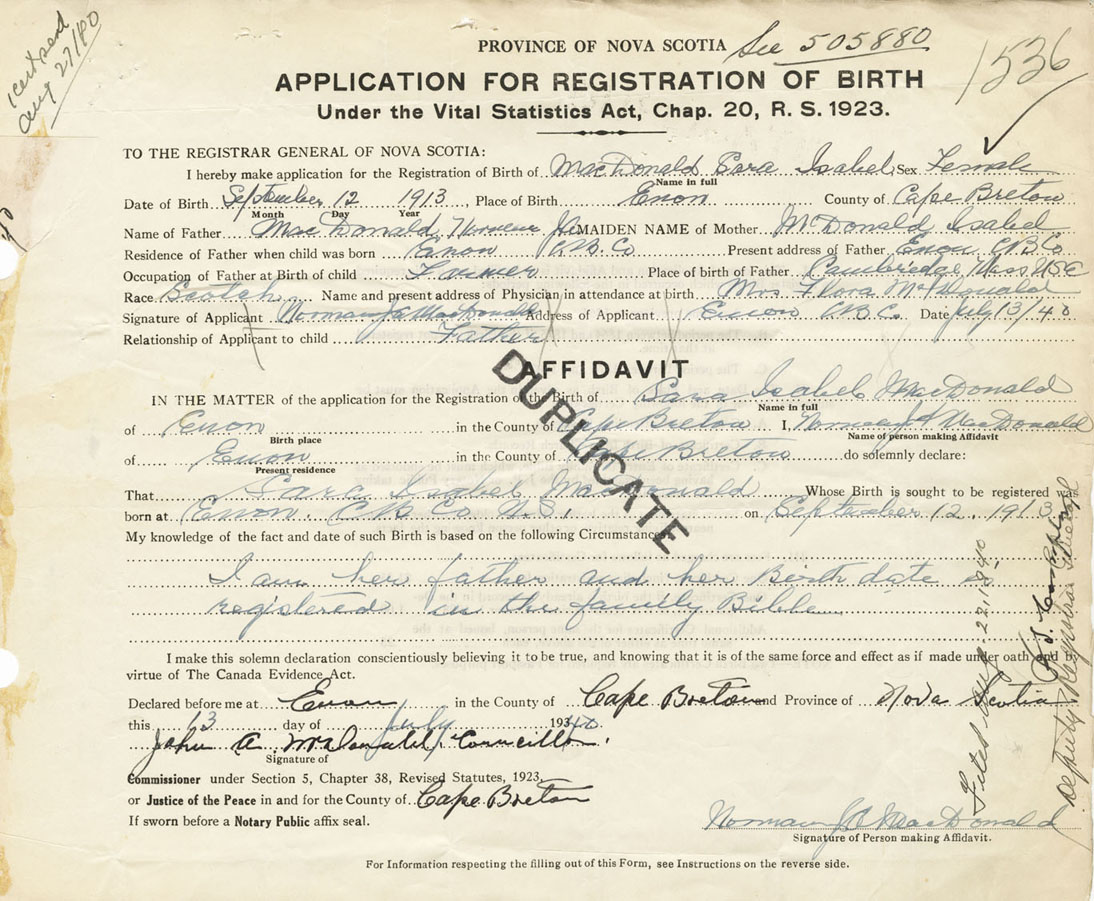 Aug 27/80
PROVINCE OF NOVA SCOTIA See 505880
1536
APPLICATION FOR REGISTRATION OF BIRTH
Under the Vital Statistics Act, Chap. 20, R. S. 1923.
TO THE REGISTRAR GENERAL OF NOVA SCOTIA:
I hereby make application for the Registration of Birth of MacDonald Sara Isabel Sex Female
Name in full
Date of Birth September 12 1913, Place of Birth Enon County of Cape Breton
Month Day Year
Name of Father MacDonald, Norman MAIDEN NAME of Mother McDonald Isabel
Residence of Father when child was born Enon C.B. Co Present address of Father Enon C.B. Co
Occupation of Father at Birth of child Farmer Place of birth of Father Cambridge, Mass USA
Race Scotch Name and present address of Physician in attendance at birth Mrs Flora McDonald
Signature of Applicant Norman J A MacDonald Address of Applicant Enon C.B.C. Date July 13/40
Relationship of Applicant to child Father
AFFIDAVIT
DUPLICATE
IN THE MATTER of the application for the Registration of the Birth of Sara Isabel MacDonald
Name in full
of Enon in the County of Cape Breton I, Norman J A MacDonald
Birth place Name of person making Affidavit
of Enon in the County of Cape Breton do solemnly declare:
Present residence
That Sara Isabel MacDonald Whose Birth is sought to be registered was
born at Enon, C.B. Co N.S. on September 12, 1913
My knowledge of the fact and date of such Birth is based on the following Circumstances
I am her father and her Birth date is
registered in the family Bible
I make this solemn declaration conscientiously believing it to be true, and knowing that it is of the same force and effect as if made under oath and by
virtue of The Canada Evidence Act.
Declared before me at Enon in the County of Cape Breton and Province of Nova Scotia
this 13 day of July 1940
John A McDonald, Councillor.
Signature of
Commissioner under Section 5, Chapter 38, Revised Statutes, 1923,
or Justice of the Peace in and for the County of Cape Breton
If sworn before a Notary Public affix seal.
Norman J A MacDonald
Signature of Person making Affidavit.
Filed Aug. 22, 1940
Deputy Registrar General
For Information respecting the filling out of this Form, see Instructions on the reverse side.